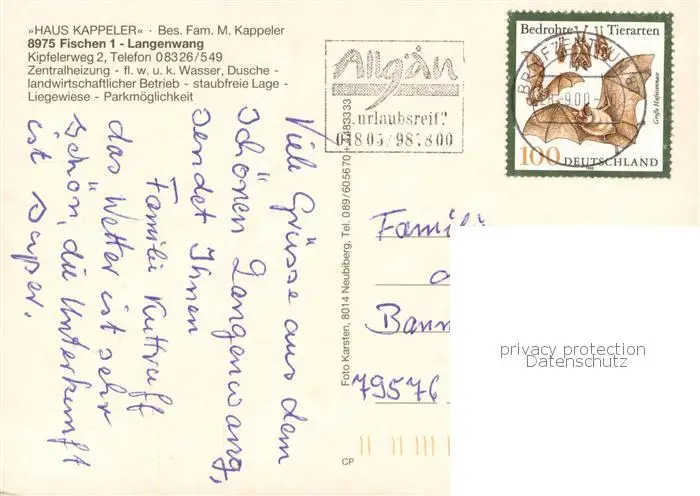 »HAUS KAPPELER« · Bes. Fam. M. Kappeler
8975 Fischen 1 - Langenwang
Kipfelerweg 2, Telefon 08326/549
Zentralheizung - fl. w. u. k. Wasser, Dusche -
landwirtschaftlicher Betrieb - staubfreie Lage -
Liegewiese - Parkmöglichkeit
Allgäu
urlaubsreif?
Bedrohte Tierarten
BRIEFZENTRUM
Große Hufeisennase
100 DEUTSCHLAND
Viele Grüsse aus dem
schönen Langenwang,
sendet Ihnen
Familie
das Wetter ist sehr
schön, die Unterkunft
ist super.
Foto Karsten, 8014 Neubiberg, Tel. 089/605670
CP
Famili
Bann
79576
privacy protection
Datenschutz